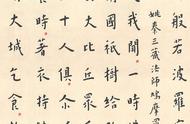 般若波羅
姚秦三藏法師鳩摩羅
我聞一時
國祇樹給
大比丘眾
十人俱尒
食時著衣持
大城乞食